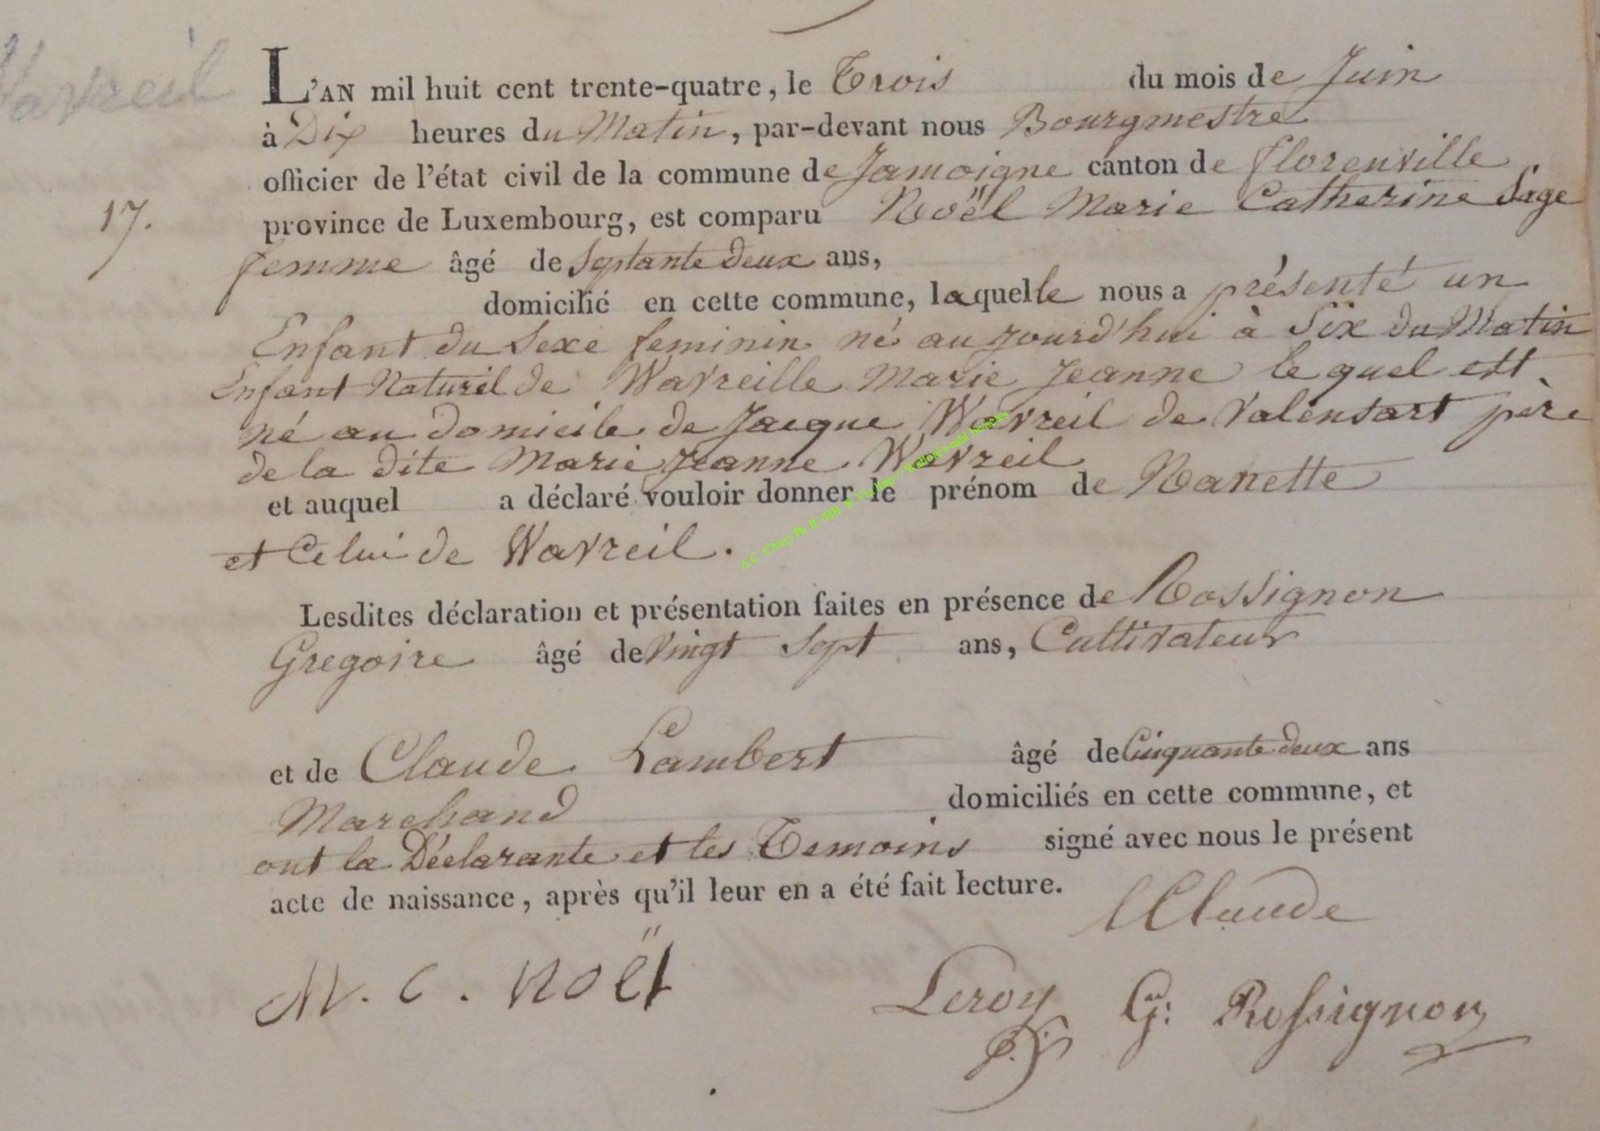 Wavreil
L'AN mil huit cent trente-quatre, le Trois du mois de Juin
à Dix heures du Matin, par-devant nous Bourgmestre
officier de l'état civil de la commune de Jamoigne canton de florenville
17.
province de Luxembourg, est comparu Noël Marie Catherine Sage
femme âgé de Septante deux ans,
domicilié en cette commune, laquelle nous a présenté un
Enfant du Sexe feminin né aujourd'hui à Six du Matin
Enfant Naturel de Wavreille Marie Jeanne lequel est
né au domicile de Jacque Wavreil de Valensart père
de la dite Marie Jeanne Wavreil
et auquel a déclaré vouloir donner le prénom de Nanette
et Celui de Wavreil.
Lesdites déclaration et présentation faites en présence de Rossignon
Gregoire âgé de Vingt Sept ans, Cultivateur
et de Claude Lambert âgé de Cinquante deux ans
Marchand domiciliés en cette commune, et
ont la Déclarante et les Temoins signé avec nous le présent
acte de naissance, après qu'il leur en a été fait lecture.
LClaude
M. C. Noël
Leroy G: Rossignon